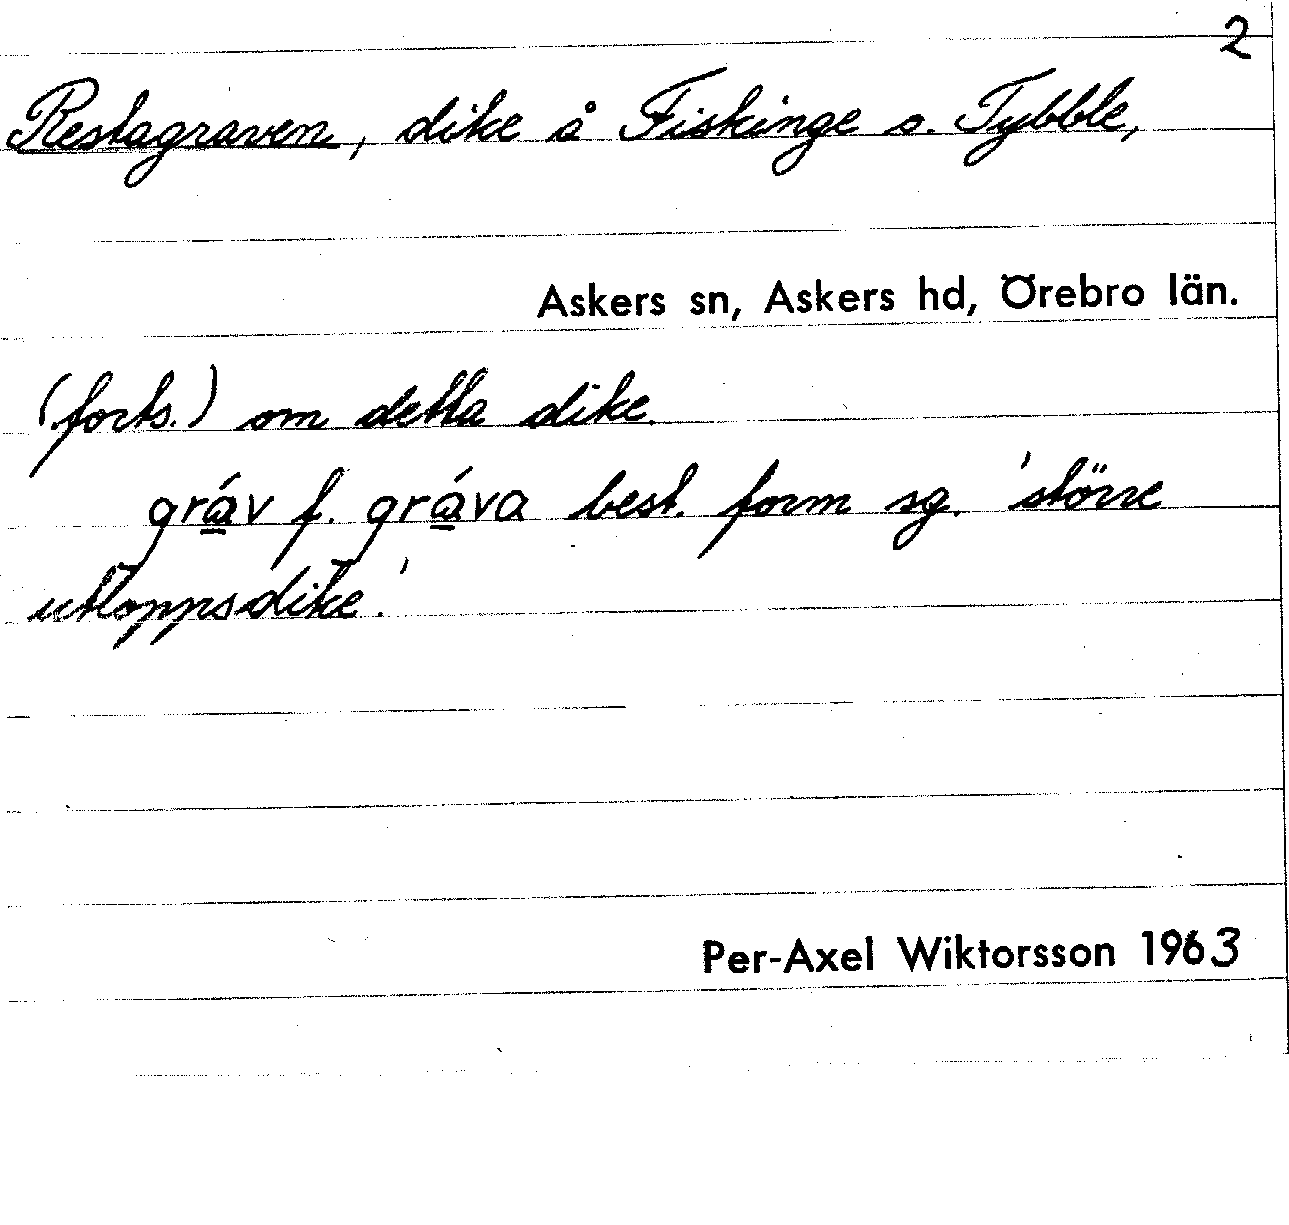 2
Restagraven, dike å Fiskinge o. Tybble,
Askers sn, Askers hd, Örebro län.
(forts.) om detta dike.
grá̱v f. grá̱va best. form sg. 'större
utloppsdike.'
Per-Axel Wiktorsson 1963